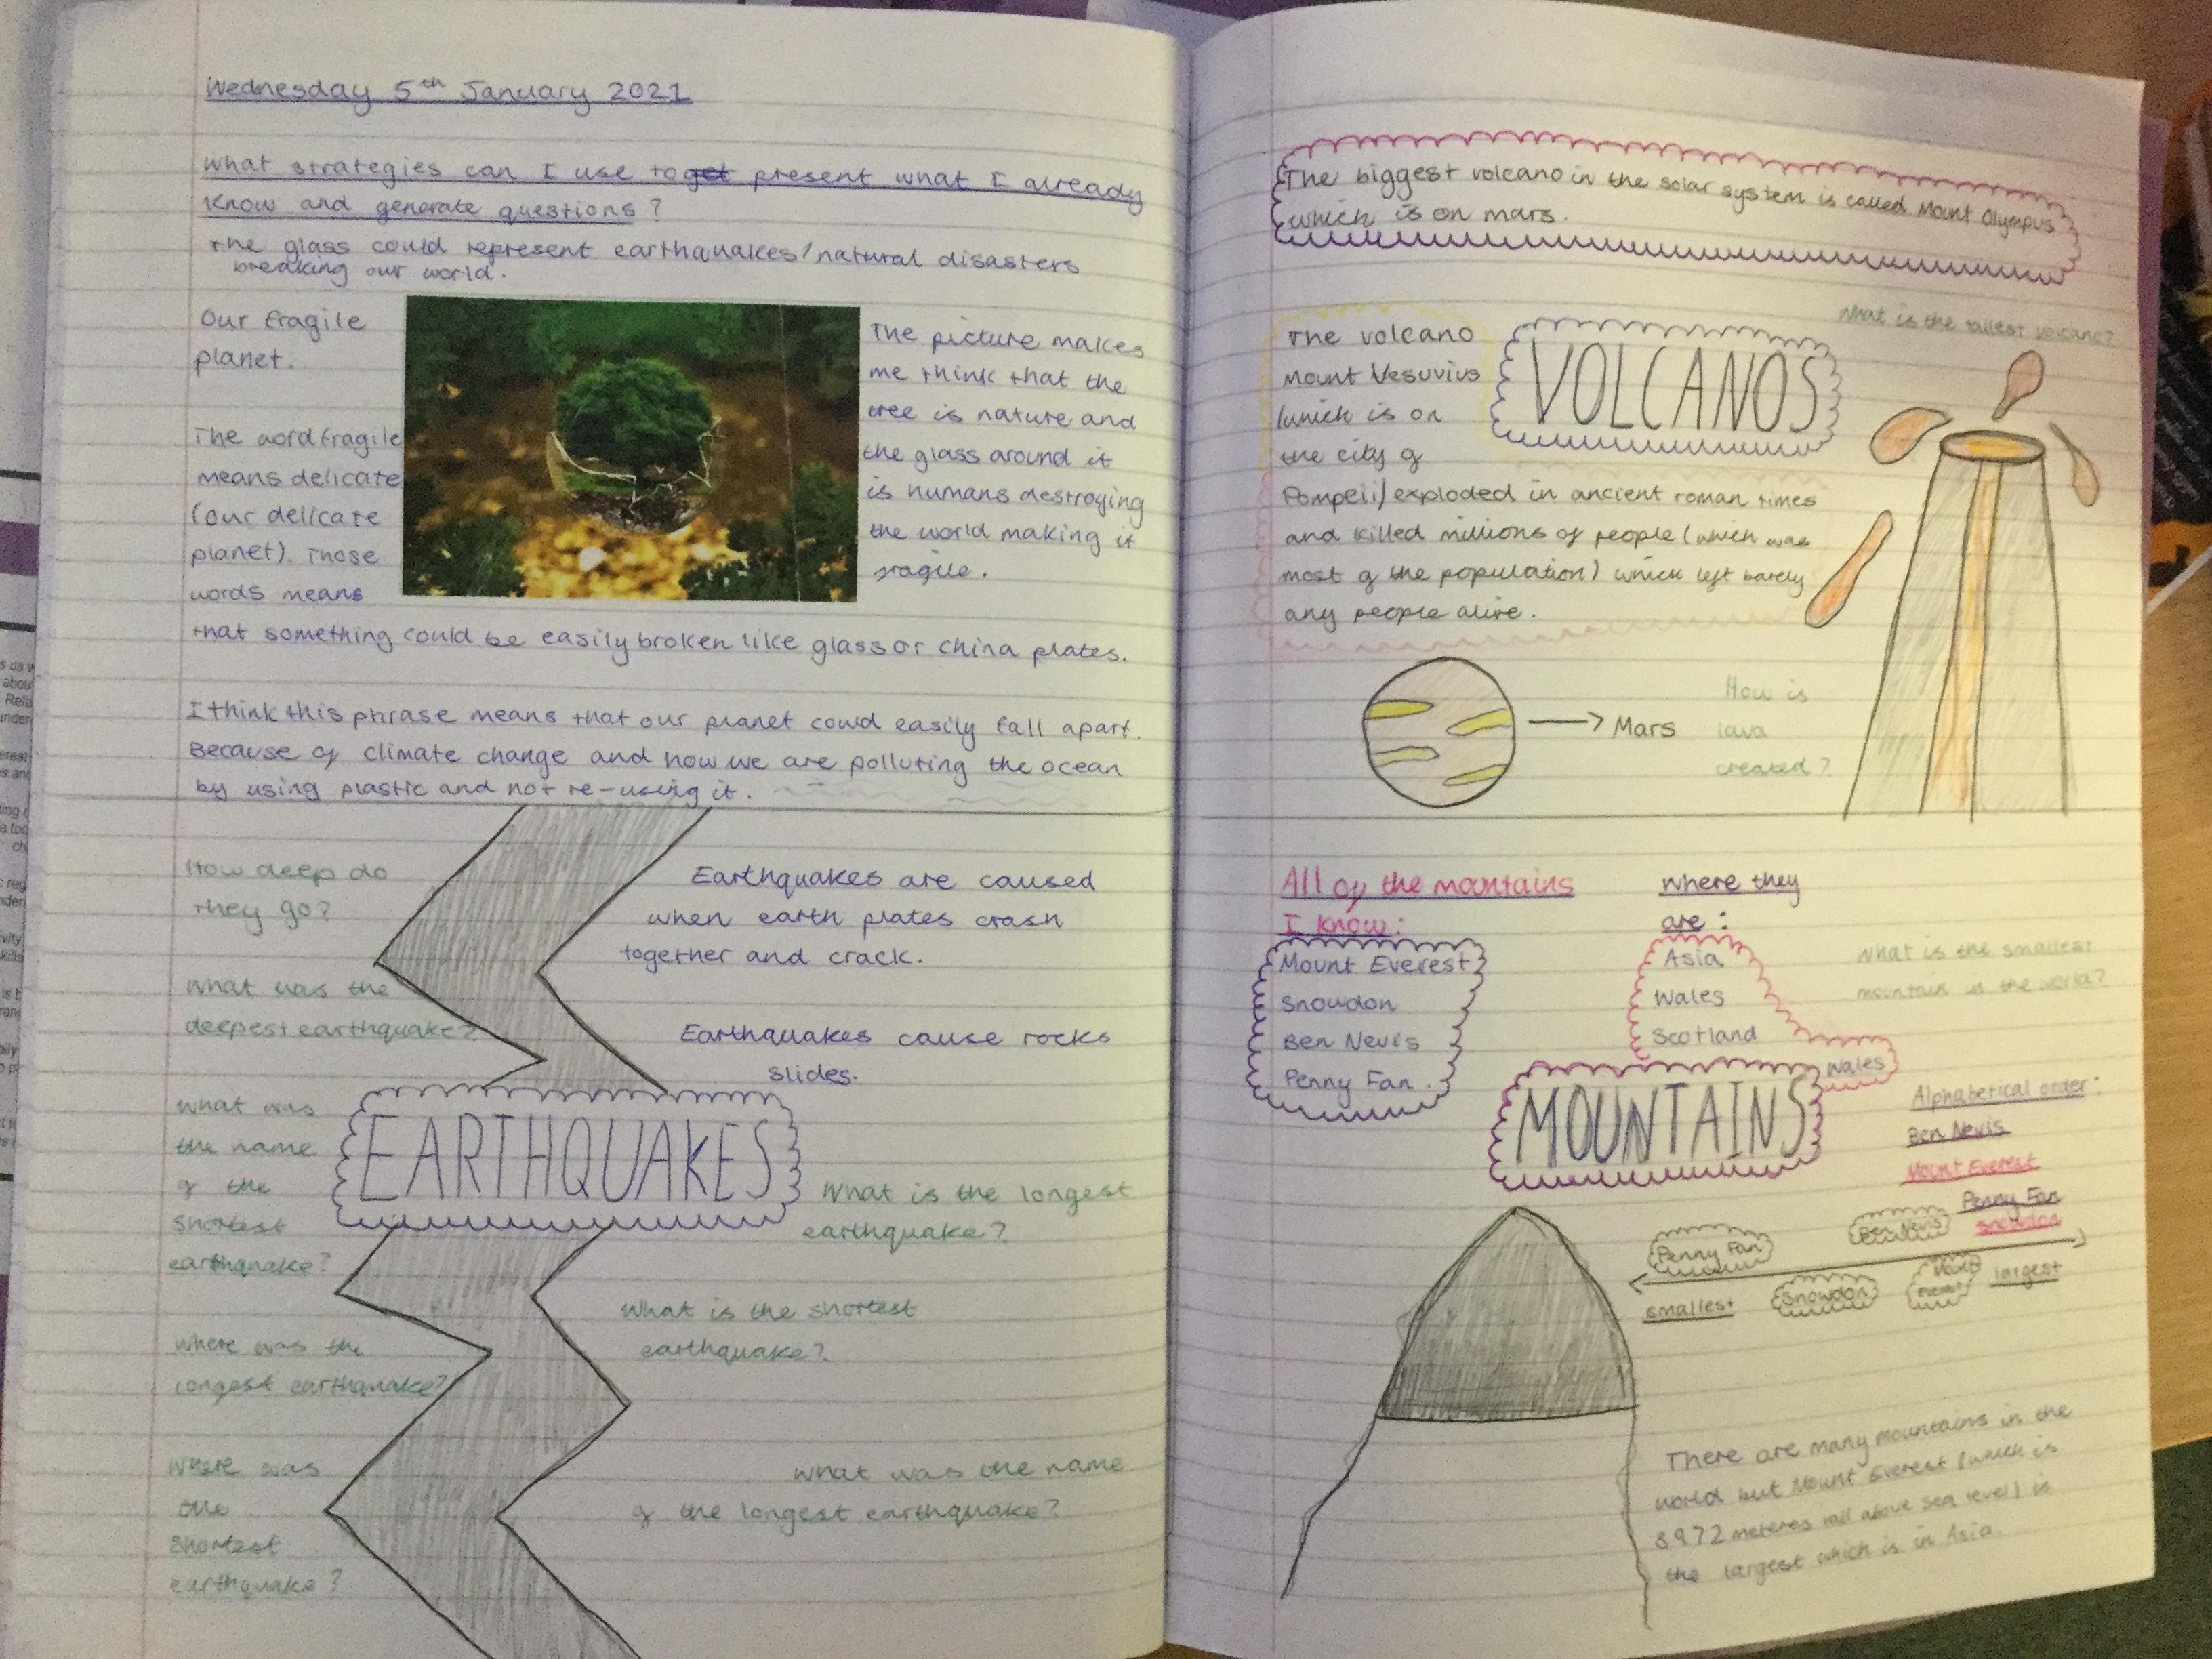 Wednesday 5th January 2021
What strategies can I use to get present what I already
know and generate questions?
The glass could represent earthquakes/natural disasters
breaking our world.
Our fragile
planet.
The word fragile
means delicate
(our delicate
planet). Those
words means
that something could be easily broken like glass or china plates.
The picture makes
me think that the
tree is nature and
the glass around it
is humans destroying
the world making it
fragile.
I think this phrase means that our planet could easily fall apart.
Because of climate change and how we are polluting the ocean
by using plastic and not re-using it.
How deep do
they go?
What was the
deepest earthquake?
Earthquakes are caused
when earth plates crash
together and crack.
Earthquakes cause rocks
slides.
EARTHQUAKES
What was
the name
of the
shortest
earthquake?
What is the longest
earthquake?
What is the shortest
earthquake?
where was the
longest earthquake?
where was
the
shortest
earthquake?
What was the name
of the longest earthquake?
The biggest volcano in the solar system is called Mount Olympus
which is on mars.
VOLCANOS
What is the tallest volcano?
The volcano
Mount Vesuvius
(which is on
the city of
Pompeii) exploded in ancient roman times
and killed millions of people (which was
most of the population) which left barely
any people alive.
Mars
How is
lava
created?
All of the mountains
I know:
Mount Everest
Snowdon
Ben Nevis
Penny Fan.
where they
are:
Asia
Wales
Scotland
Wales
What is the smallest
mountain in the world?
MOUNTAINS
Alphabetical order:
Ben Nevis
Mount Everest
Penny Fan
Snowdon
Penny Fan
Ben Nevis
smallest
Snowdon
Mount
Everest
largest
There are many mountains in the
world but Mount Everest (which is
8972 meteres tall above sea level) is
the largest which is in Asia.